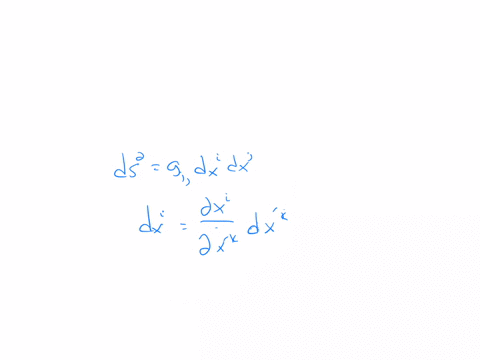 ds² = gᵢⱼ dxⁱ dxʲ
dxⁱ = ∂xⁱ/∂x′ᵏ dx′ᵏ